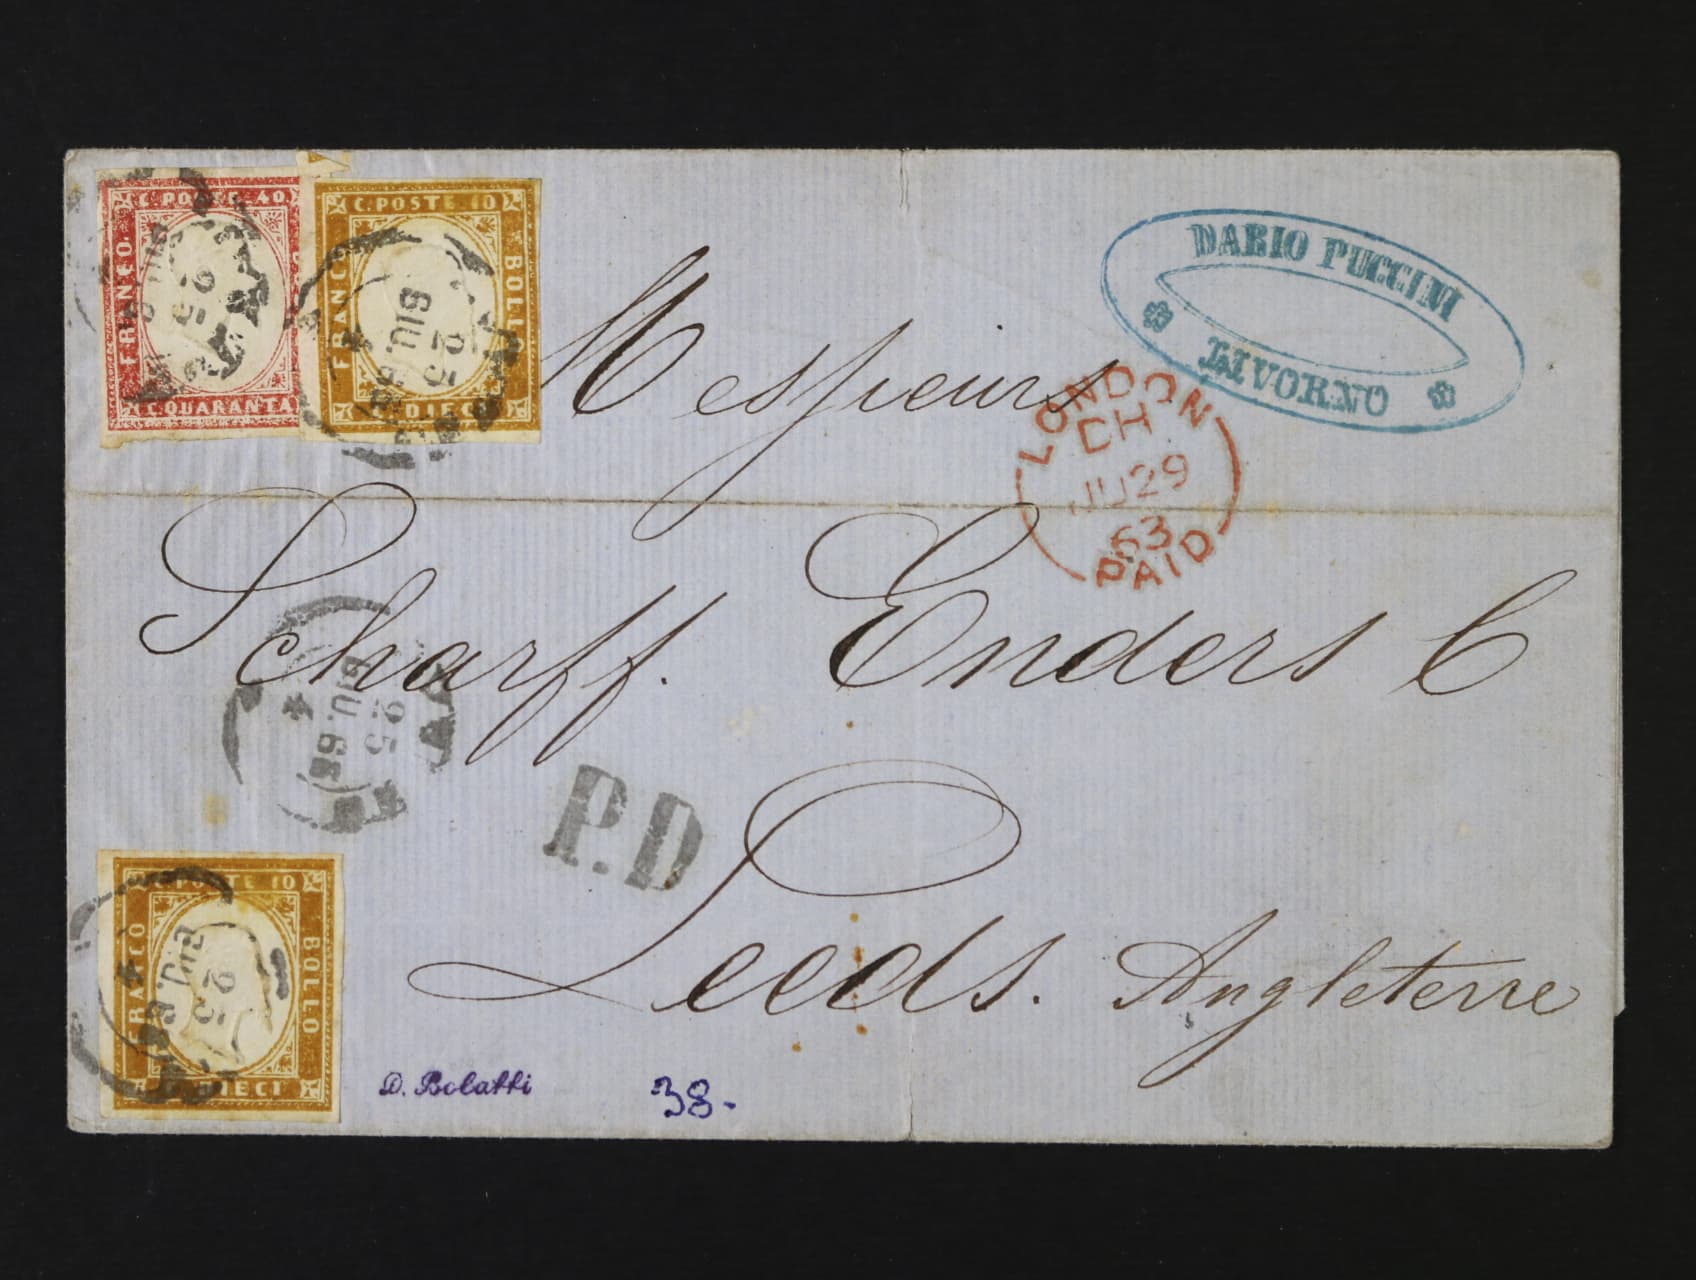 C. POSTE. 40
FRANCO.
C. QUARANTA
C. POSTE 10
FRANCO
BOLLO
DIECI
25
GIU. 63
DARIO PUCCINI
LIVORNO
Messieurs
LONDON
CH
JU 29
63
PAID
Scharff. Enders C
25
GIU. 63
4
P.D
Leeds. Angleterre
POSTE 10
FRANCO
BOLLO
DIECI
25
GIU. 63
D. Bolatti
38-